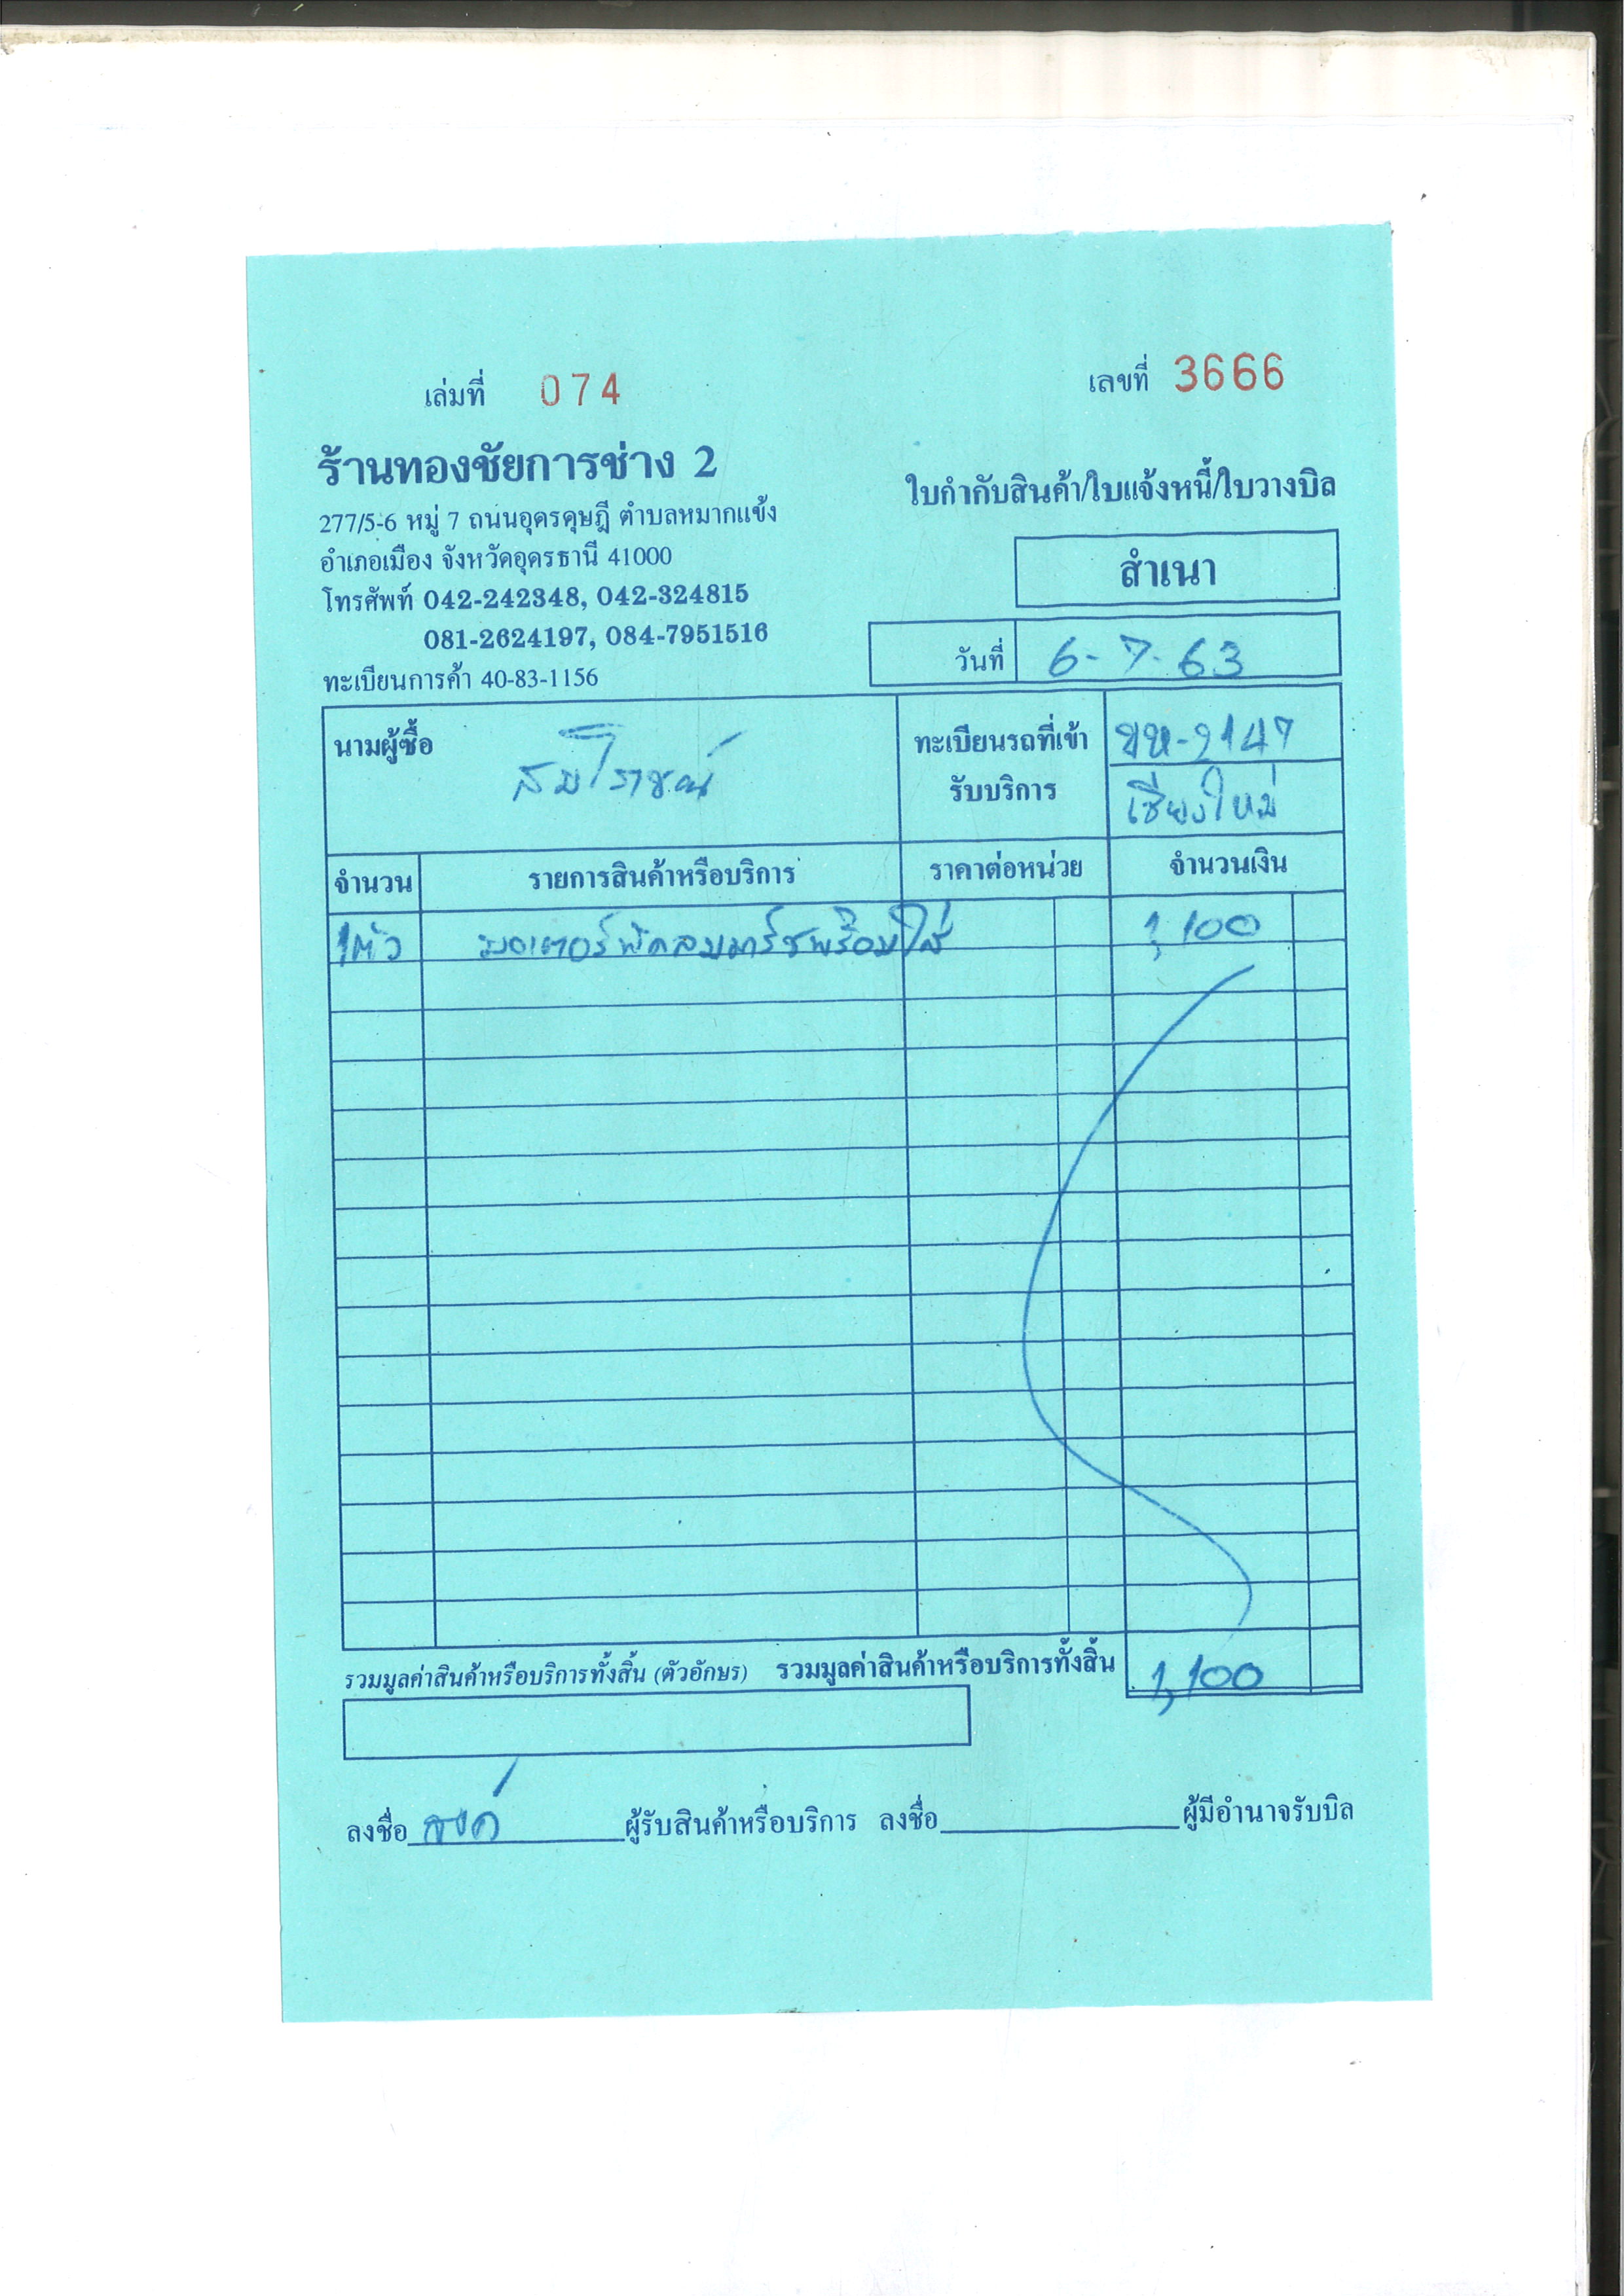 เล่มที่ 074 เลขที่ 3666
ร้านทองชัยการช่าง 2
ใบกำกับสินค้า/ใบแจ้งหนี้/ใบวางบิล
277/5-6 หมู่ 7 ถนนอุดรดุษฎี ตำบลหมากแข้ง
อำเภอเมือง จังหวัดอุดรธานี 41000
สำเนา
โทรศัพท์ 042-242348, 042-324815
081-2624197, 084-7951516
วันที่ 6-7-63
ทะเบียนการค้า 40-83-1156
นามผู้ซื้อ สมโรชณ์
ทะเบียนรถที่เข้า
รับบริการ
2147
เชียงใหม่
จำนวน รายการสินค้าหรือบริการ ราคาต่อหน่วย จำนวนเงิน
1ตัว มอเตอร์พัดลมมาร์ชพร้อมใส่ 1,100
รวมมูลค่าสินค้าหรือบริการทั้งสิ้น (ตัวอักษร) รวมมูลค่าสินค้าหรือบริการทั้งสิ้น 1,100
ลงชื่อ ผู้รับสินค้าหรือบริการ ลงชื่อ ผู้มีอำนาจรับบิล